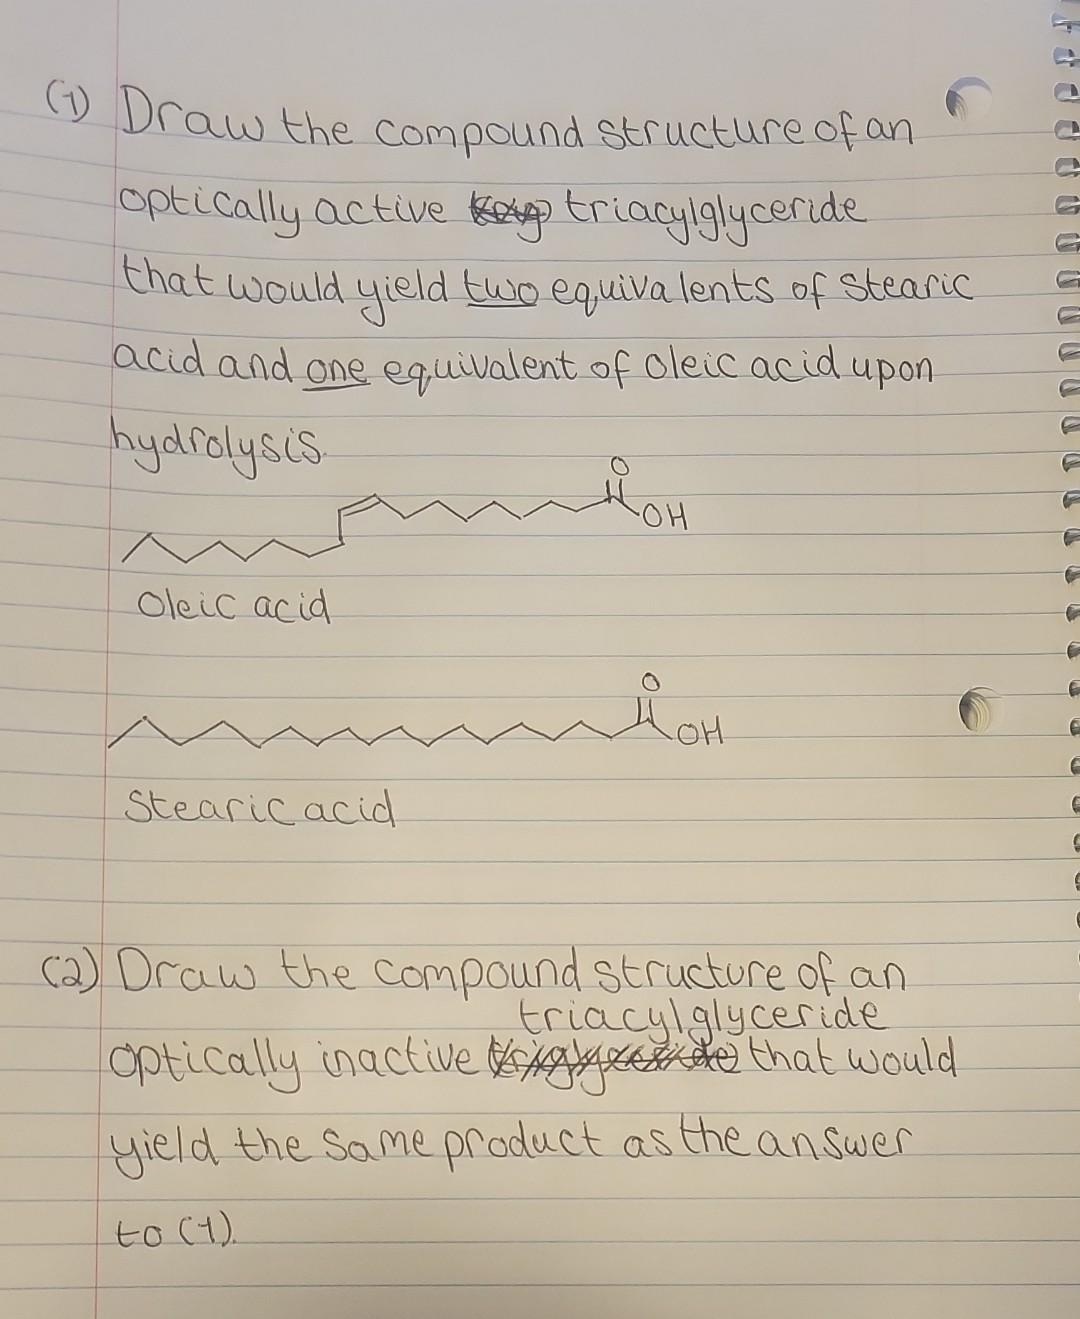 (1) Draw the compound structure of an
optically active triacylglyceride
that would yield two equivalents of stearic
acid and one equivalent of oleic acid upon
hydrolysis.
O
OH
Oleic acid
O
OH
Stearic acid
(2) Draw the compound structure of an
triacylglyceride
optically inactive that would
yield the same product as the answer
to (1).